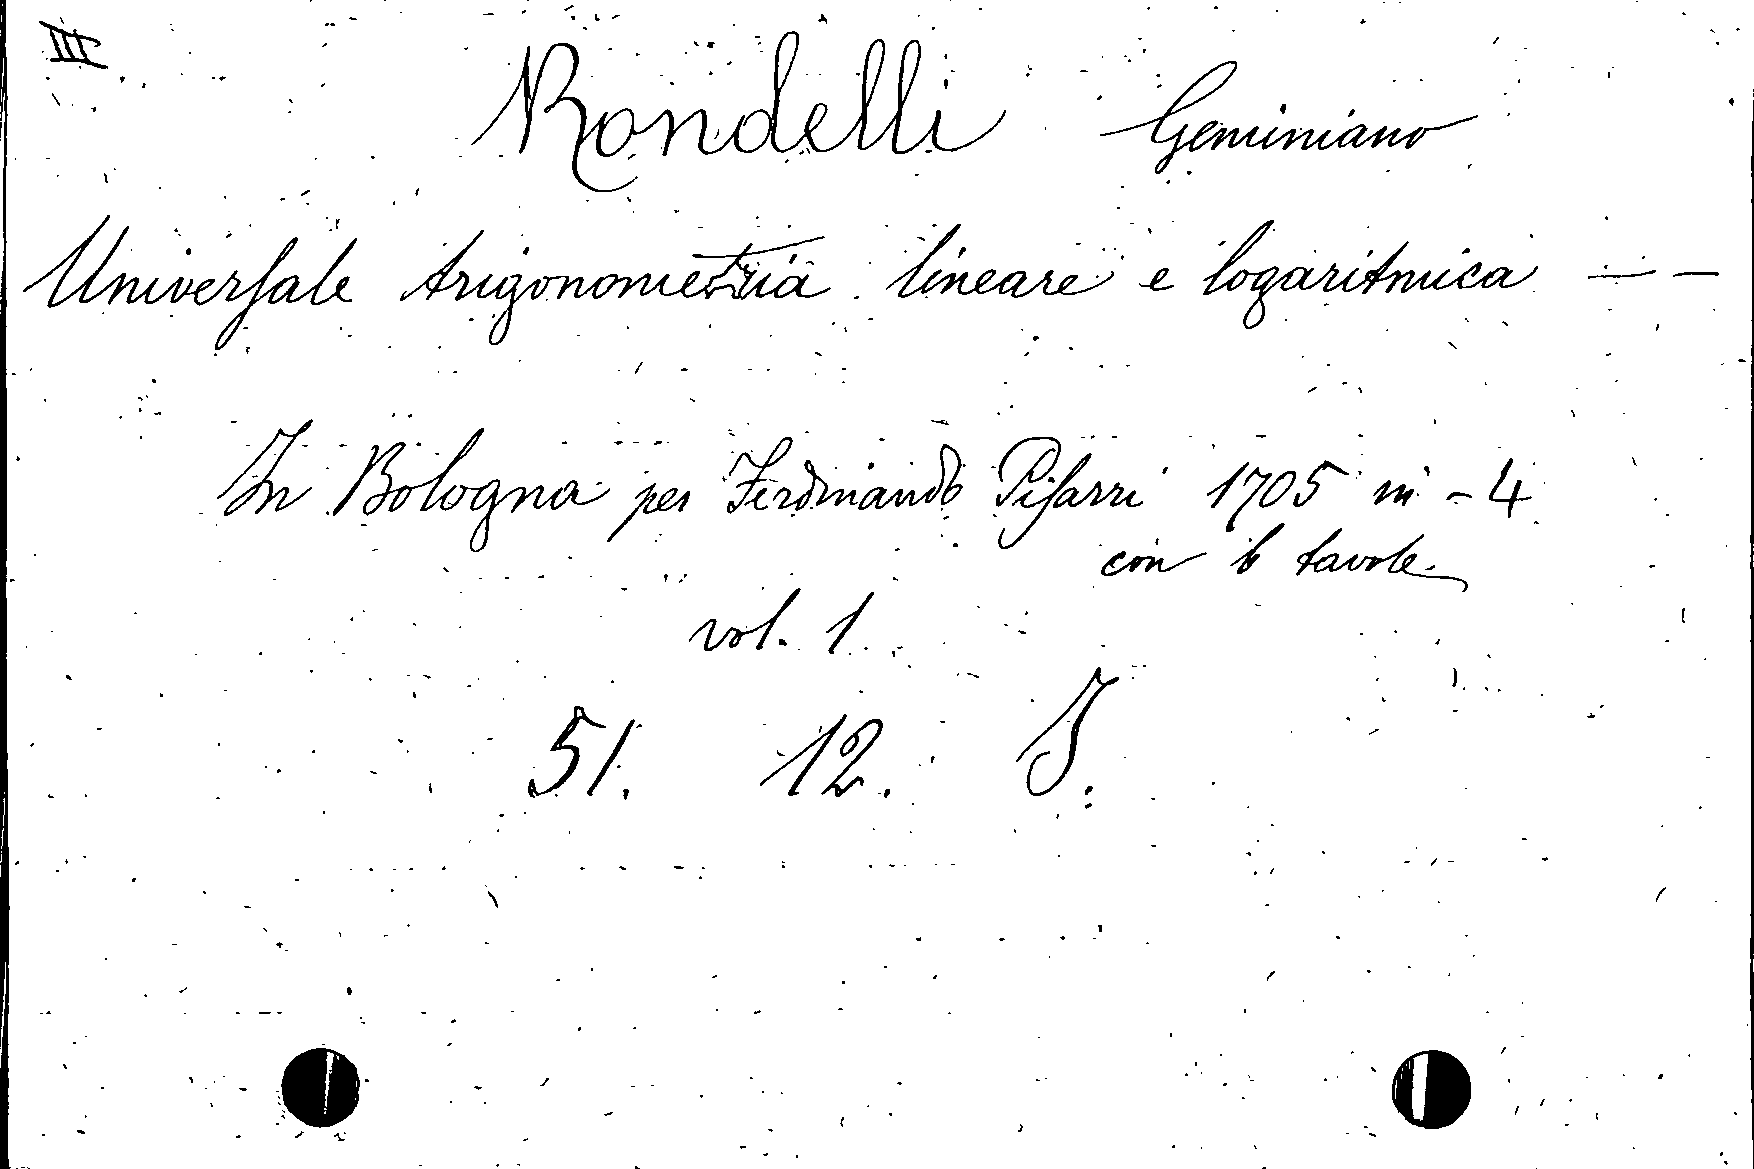 III
Rondelli Geminiano
Universale trigonometria lineare e logaritmica — —
In Bologna per Ferdinando Pisarri 1705 in - 4
con 6 tavole.
vol. 1.
51. 12. J.